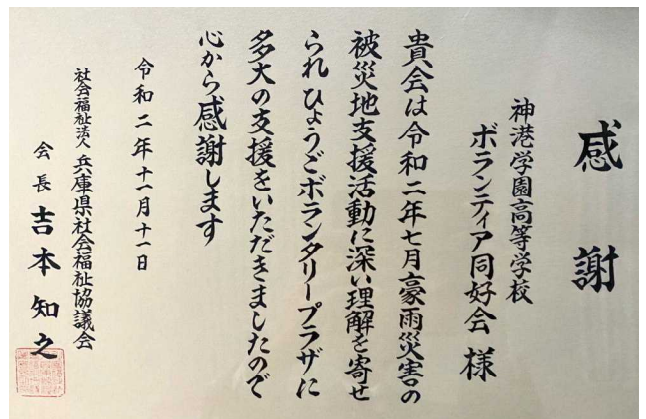 感謝
神港学園高等学校
ボランティア同好会様
貴会は令和二年七月豪雨災害の
被災地支援活動に深い理解を寄せ
られひょうごボランタリープラザに
多大の支援をいただきましたので
心から感謝します
令和二年十一月十一日
社会福祉法人 兵庫県社会福祉協議会
会長 吉本知之